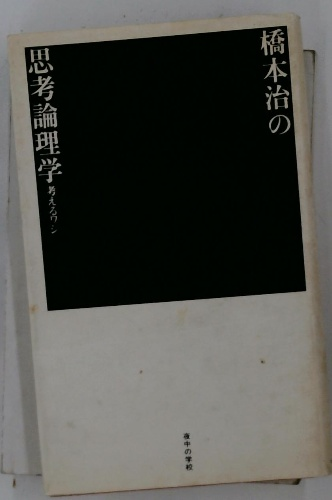 橋本治の
思考論理学
考えるワシ
夜中の学校